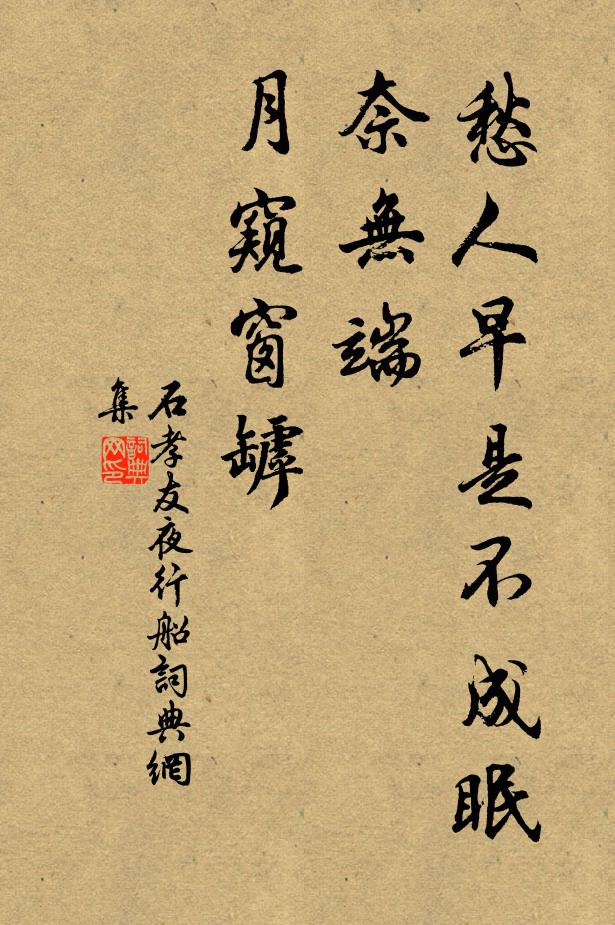 愁人早是不成眠
奈無端
月窺窗罅
石孝友夜行船詞典網
集
詞典网印